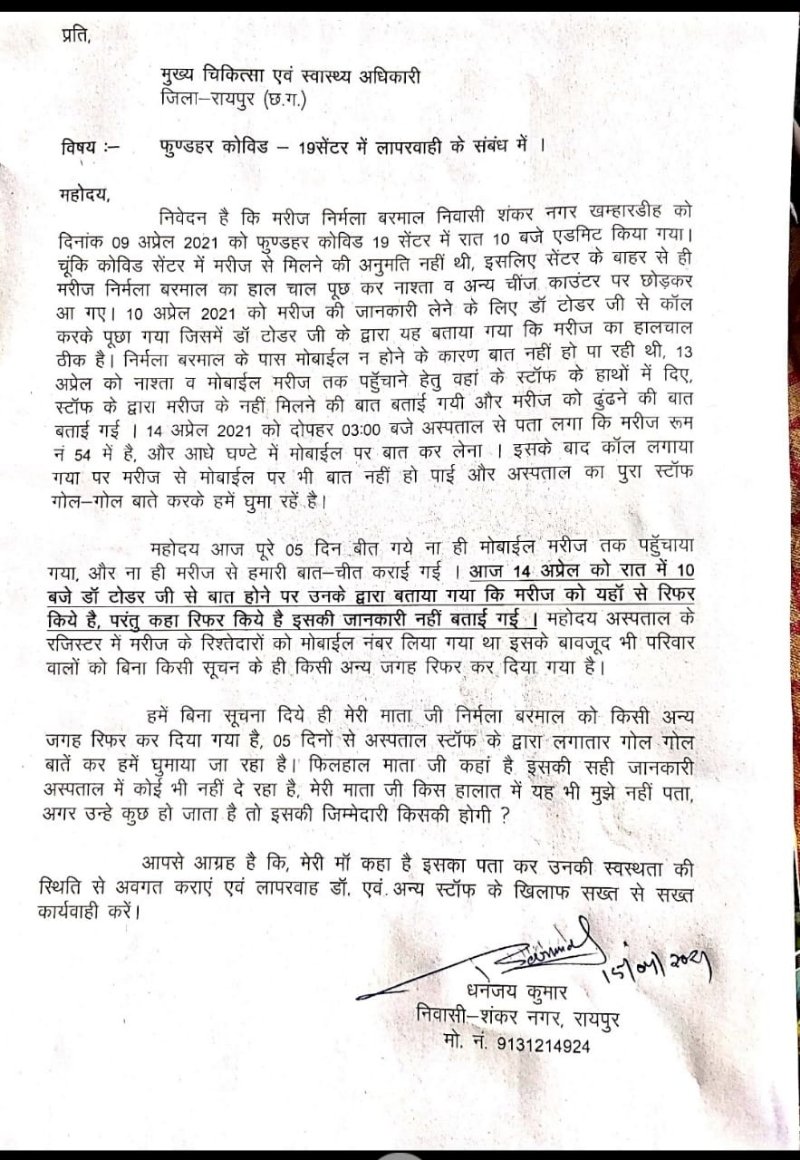 प्रति,
मुख्य चिकित्सा एवं स्वास्थ्य अधिकारी
जिला–रायपुर (छ.ग.)
विषय :– फुण्डहर कोविड – 19सेंटर में लापरवाही के संबंध में ।
महोदय,
निवेदन है कि मरीज निर्मला बरमाल निवासी शंकर नगर खम्हारडीह को
दिनांक 09 अप्रेल 2021 को फुण्डहर कोविड 19 सेंटर में रात 10 बजे एडमिट किया गया।
चूंकि कोविड सेंटर में मरीज से मिलने की अनुमति नहीं थी, इसलिए सेंटर के बाहर से ही
मरीज निर्मला बरमाल का हाल चाल पूछ कर नाश्ता व अन्य चींज काउंटर पर छोड़कर
आ गए। 10 अप्रेल 2021 को मरीज की जानकारी लेने के लिए डॉ टोडर जी से कॉल
करके पूछा गया जिसमें डॉ टोडर जी के द्वारा यह बताया गया कि मरीज का हालचाल
ठीक है। निर्मला बरमाल के पास मोबाईल न होने के कारण बात नहीं हो पा रही थी, 13
अप्रेल को नाश्ता व मोबाईल मरीज तक पहुँचाने हेतु वहां के स्टॉफ के हाथों में दिए,
स्टॉफ के द्वारा मरीज के नहीं मिलने की बात बताई गयी और मरीज को ढुंढने की बात
बताई गई । 14 अप्रेल 2021 को दोपहर 03:00 बजे अस्पताल से पता लगा कि मरीज रूम
नं 54 में है, और आधे घण्टे में मोबाईल पर बात कर लेना । इसके बाद कॉल लगाया
गया पर मरीज से मोबाईल पर भी बात नहीं हो पाई और अस्पताल का पुरा स्टॉफ
गोल–गोल बाते करके हमें घुमा रहें है।
महोदय आज पूरे 05 दिन बीत गये ना ही मोबाईल मरीज तक पहुँचाया
गया, और ना ही मरीज से हमारी बात–चीत कराई गई । आज 14 अप्रेल को रात में 10
बजे डॉ टोडर जी से बात होने पर उनके द्वारा बताया गया कि मरीज को यहाँ से रिफर
किये है, परंतु कहा रिफर किये है इसकी जानकारी नहीं बताई गई । महोदय अस्पताल के
रजिस्टर में मरीज के रिश्तेदारों को मोबाईल नंबर लिया गया था इसके बावजूद भी परिवार
वालों को बिना किसी सूचन के ही किसी अन्य जगह रिफर कर दिया गया है।
हमें बिना सूचना दिये ही मेरी माता जी निर्मला बरमाल को किसी अन्य
जगह रिफर कर दिया गया है, 05 दिनों से अस्पताल स्टॉफ के द्वारा लगातार गोल गोल
बातें कर हमें घुमाया जा रहा है। फिलहाल माता जी कहां है इसकी सही जानकारी
अस्पताल में कोई भी नहीं दे रहा है, मेरी माता जी किस हालात में यह भी मुझे नहीं पता,
अगर उन्हे कुछ हो जाता है तो इसकी जिम्मेदारी किसकी होगी ?
आपसे आग्रह है कि, मेरी माँ कहा है इसका पता कर उनकी स्वस्थता की
स्थिति से अवगत कराएं एवं लापरवाह डॉ. एवं अन्य स्टॉफ के खिलाफ सख्त से सख्त
कार्यवाही करें।
15/04/2021
धनंजय कुमार
निवासी–शंकर नगर, रायपुर
मो. नं. 9131214924